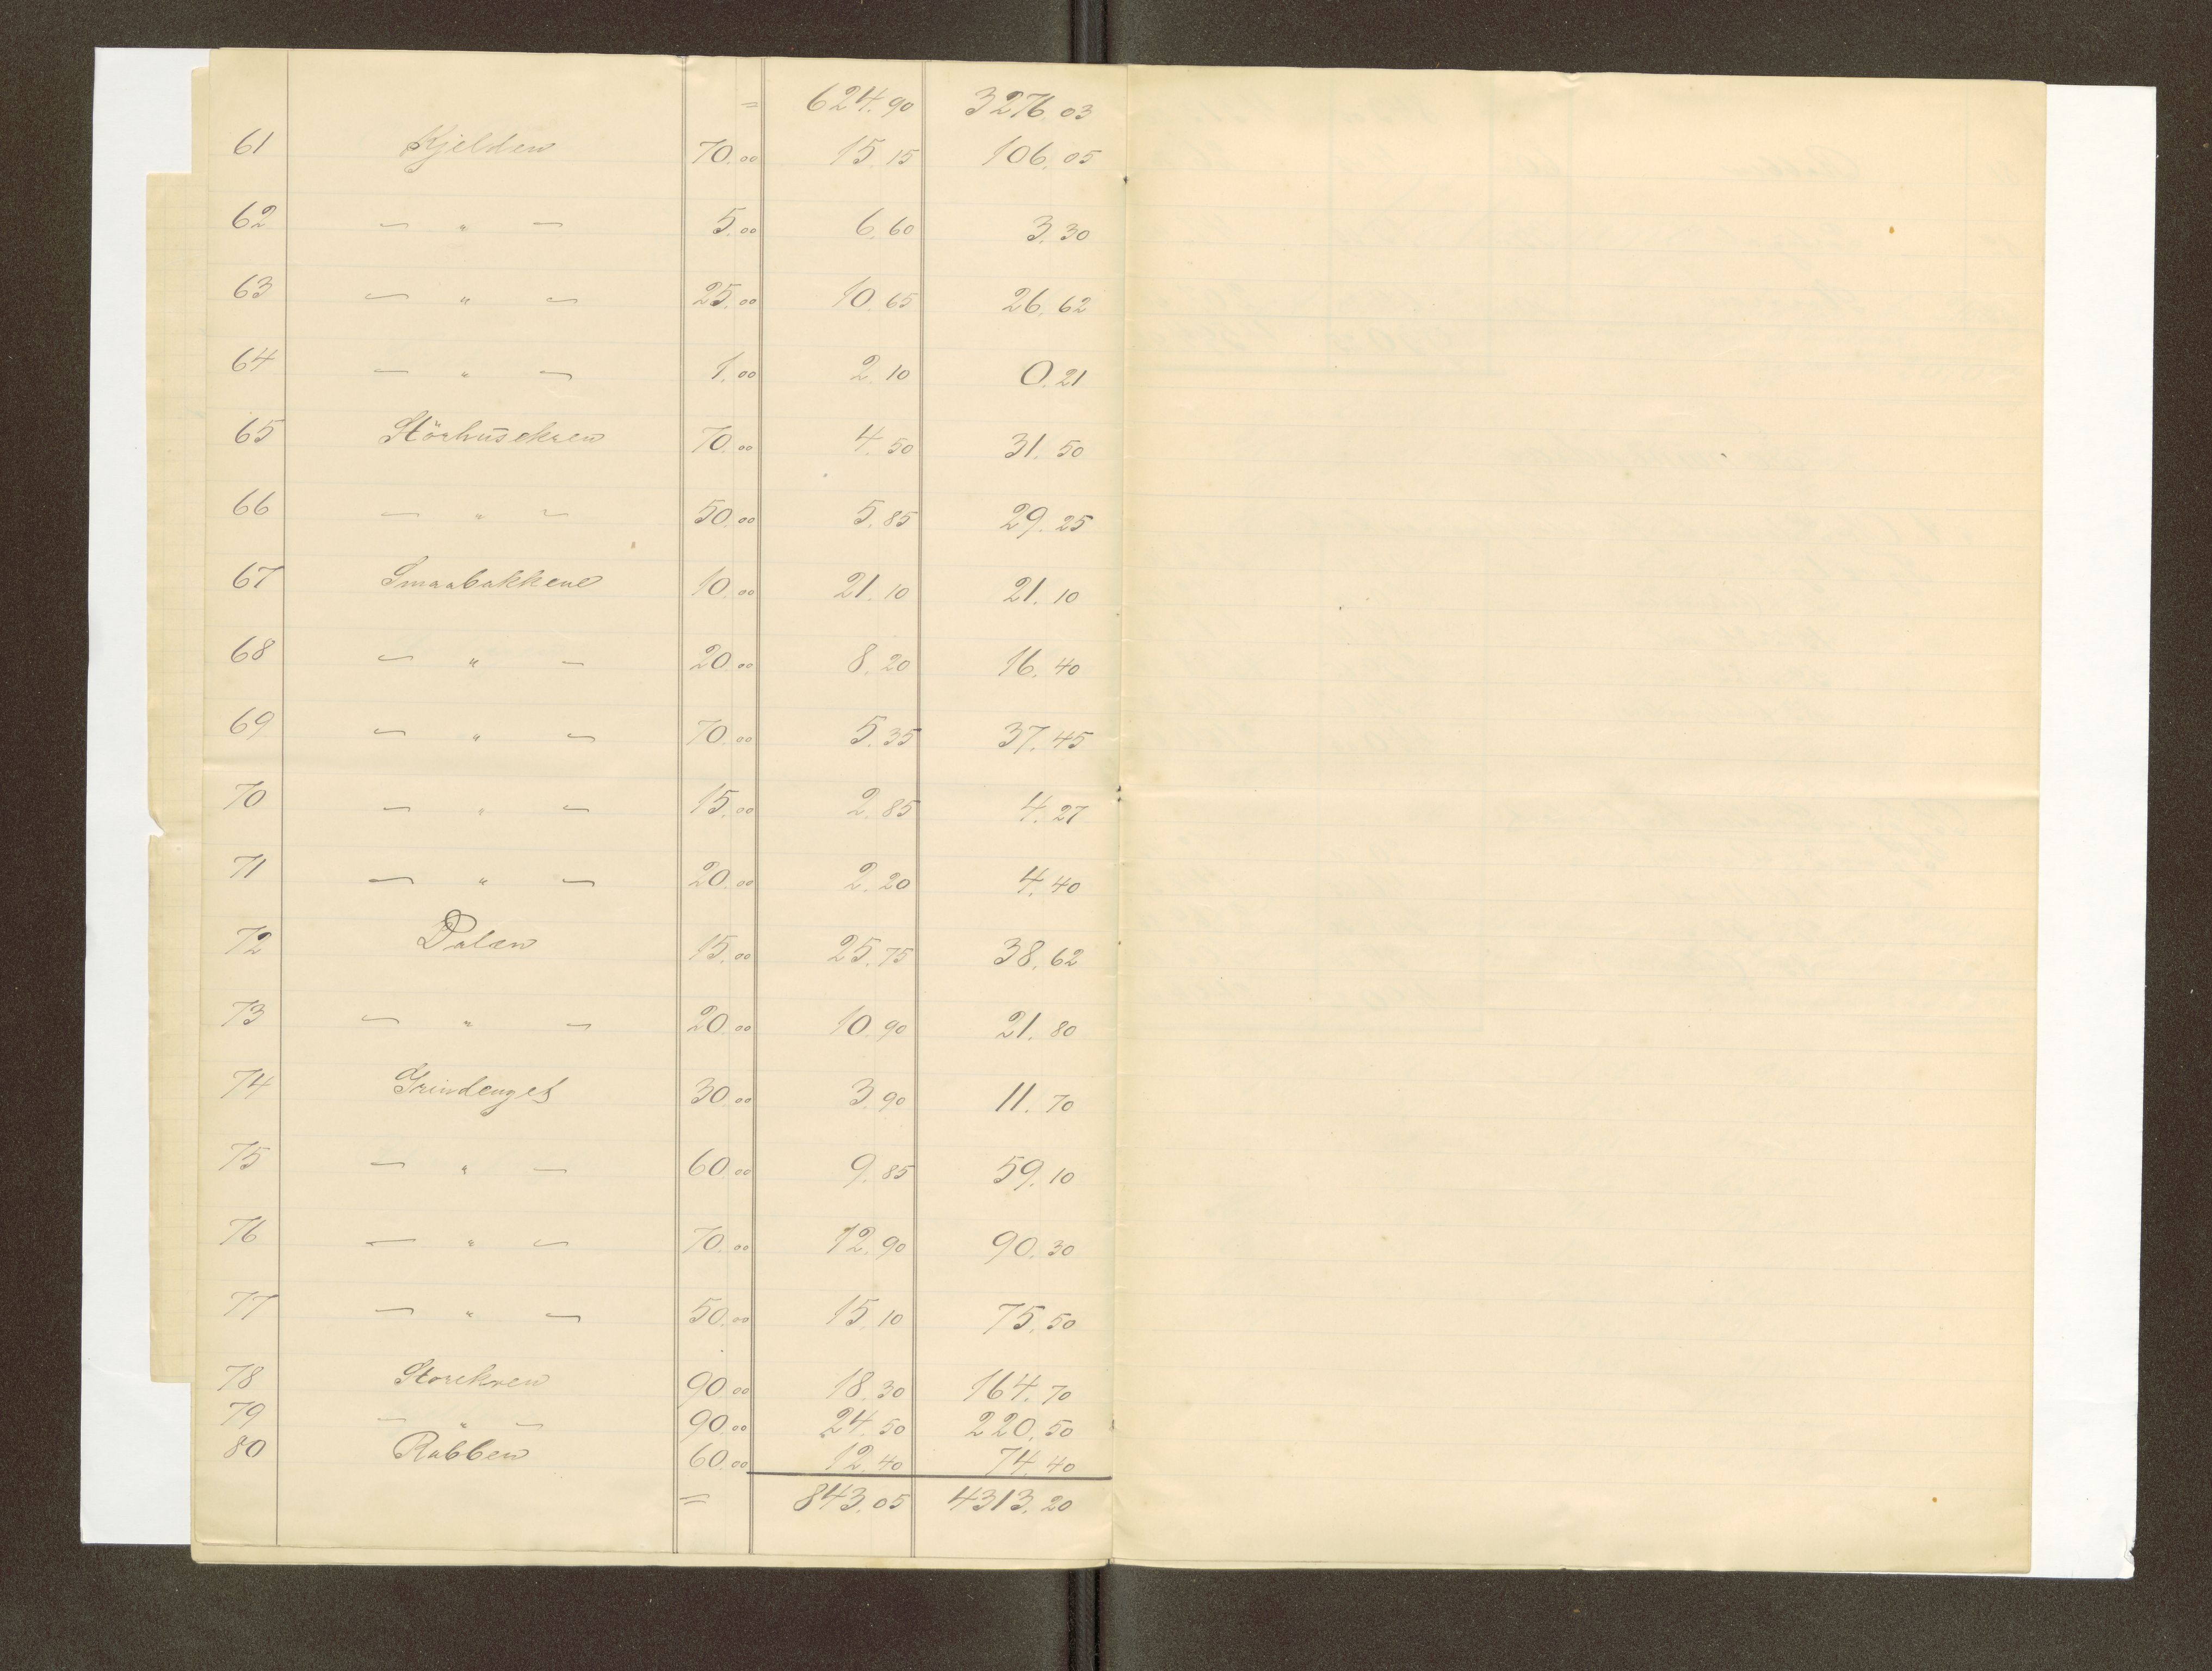 = 624.90 3276.03
61 Kjelden 70.00 15.15 106.05
62 — " — 5.00 6.60 3.30
63 — " — 25.00 10.65 26.62
64 — " — 1.00 2.10 0.21
65 Störhusekren 70.00 4.50 31.50
66 — " — 50.00 5.85 29.25
67 Smaabakkene 10.00 21.10 21.10
68 — " — 20.00 8.20 16.40
69 — " — 70.00 5.35 37.45
70 — " — 15.00 2.85 4.27
71 — " — 20.00 2.20 4.40
72 Dalen 15.00 25.75 38.62
73 — " — 20.00 10.90 21.80
74 Grindenget 30.00 3.90 11.70
75 — " — 60.00 9.85 59.10
76 — " — 70.00 12.90 90.30
77 — " — 50.00 15.10 75.50
78 Storekren 90.00 18.30 164.70
79 — " — 90.00 24.50 220.50
80 Rabben 60.00 12.40 74.40
= 843.05 4313.20